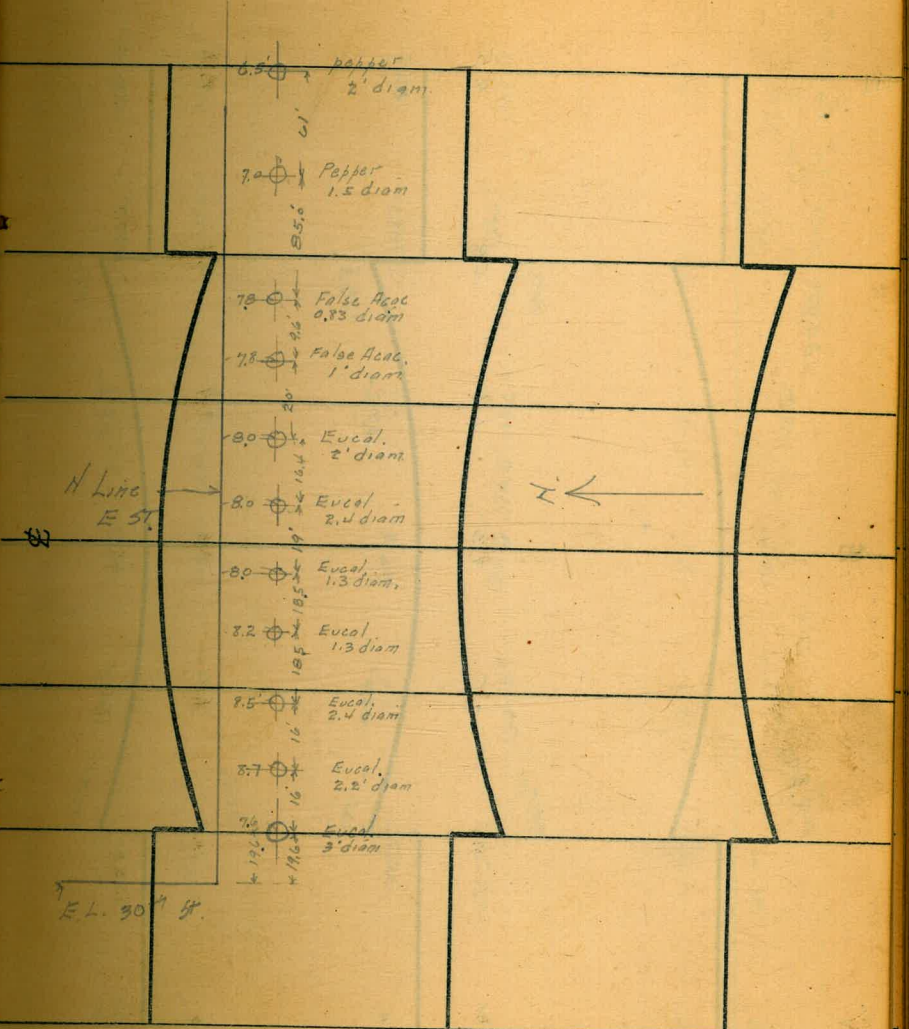 6.5' pepper
2' diam.
61'
7.0 Pepper
1.5 diam
85.0'
7.8 False Acac
0.83 diam
9.6'
7.8 False Acac.
1' diam
20'
8.0 Eucal.
2' diam
16.4
N Line
E St.
8.0 Eucal
2.4 diam
N
19'
8.0 Eucal.
1.3 diam.
18.5
8.2 Eucal
1.3 diam
18.5
Eucal.
2.4 diam
16'
8.7 Eucal.
2.2' diam
16'
7.6 Eucal
3' diam
19.6
19.6
E.L. 30th St.